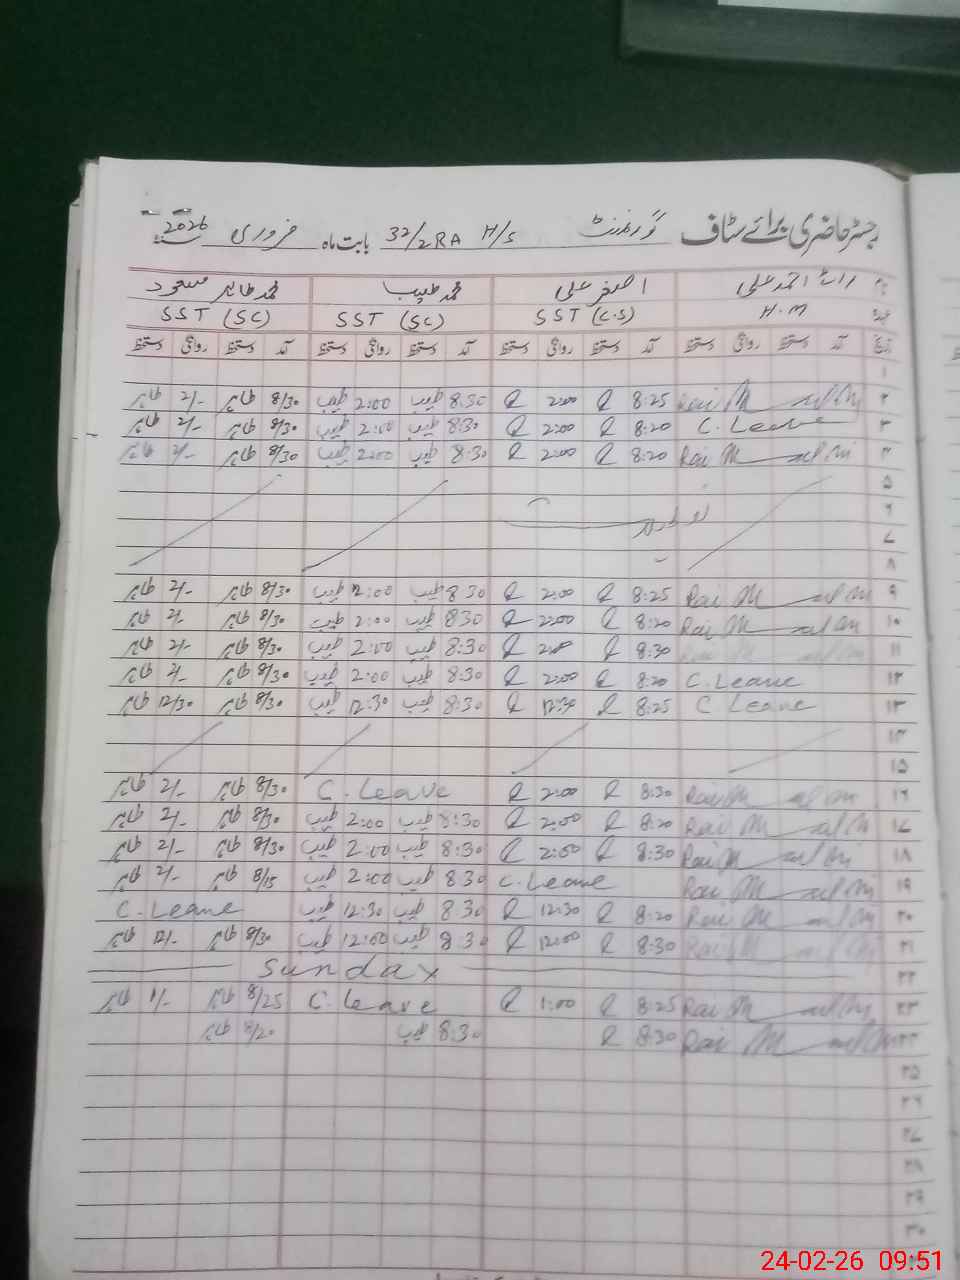 رجسٹر حاضری برائے سٹاف گورنمنٹ H/S 32/2RA بابت ماہ فروری 2026
نام احمد علی اصغر علی محمد طیب محمد طاہر مسعود
عہدہ H.M SST (C.S) SST (SC) SST (SC)
تاریخ آمد دستخط روانگی دستخط آمد دستخط روانگی دستخط آمد دستخط روانگی دستخط آمد دستخط روانگی دستخط
۱
۲ Rai 8:25 2:00 8:30 طیب 2:00 طیب 8/30 طاہر 2/- طاہر
۳ C. Leave 8:20 2:00 8:30 طیب 2:00 طیب 8/30 طاہر 2/- طاہر
۴ Rai 8:20 2:00 8:30 طیب 2:00 طیب 8/30 طاہر 2/- طاہر
۵
۶
۷
۸
۹ Rai 8:25 2:00 8:30 طیب 2:00 طیب 8/30 طاہر 2/- طاہر
۱۰ Rai 8:20 2:00 8:30 طیب 2:00 طیب 8/30 طاہر 2/- طاہر
۱۱ 8:30 8:30 طیب 2:00 طیب 8/30 طاہر 2/- طاہر
۱۲ C. Leave 8:20 2:00 8:30 طیب 2:00 طیب 8/30 طاہر 2/- طاہر
۱۳ C Leave 8:25 12:30 8:30 طیب 12:30 طیب 8/30 طاہر 12/30 طاہر
۱۴
۱۵
۱۶ Rai 8:30 2:00 C. Leave 8/30 طاہر 2/- طاہر
۱۷ Rai 8:20 2:00 8:30 طیب 2:00 طیب 8/30 طاہر 2/- طاہر
۱۸ Rai 8:30 2:00 8:30 طیب 2:00 طیب 8/30 طاہر 2/- طاہر
۱۹ Rai C. Leave 8:30 طیب 2:00 طیب 8/15 طاہر 2/- طاہر
۲۰ Rai 8:20 12:30 8:30 طیب 12:30 طیب C. Leave
۲۱ Rai 8:30 12:00 8:30 طیب 12:00 طیب 8/30 طاہر 12/- طاہر
۲۲ Sunday
۲۳ Rai 8:25 1:00 C. Leave 8/25 طاہر 1/- طاہر
۲۴ Rai 8:30 8:30 طیب 8/20 طاہر
۲۵
۲۶
۲۷
۲۸
۲۹
۳۰
24-02-26 09:51